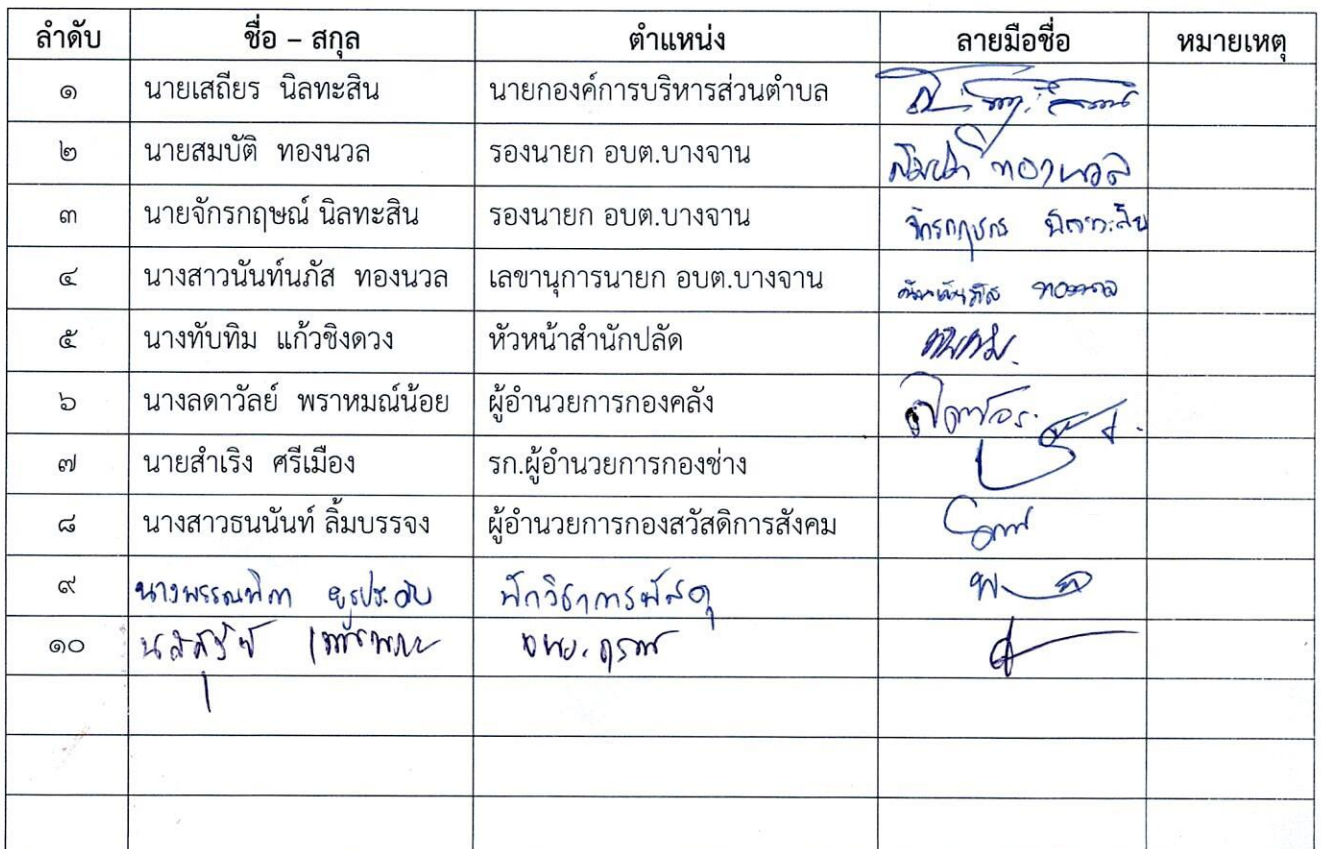 ลำดับ ชื่อ – สกุล ตำแหน่ง ลายมือชื่อ หมายเหตุ
๑ นายเสถียร นิลทะสิน นายกองค์การบริหารส่วนตำบล
๒ นายสมบัติ ทองนวล รองนายก อบต.บางจาน สมบัติ ทองนวล
๓ นายจักรกฤษณ์ นิลทะสิน รองนายก อบต.บางจาน
๔ นางสาวนันท์นภัส ทองนวล เลขานุการนายก อบต.บางจาน นันท์นภัส ทองนวล
๕ นางทับทิม แก้วชิงดวง หัวหน้าสำนักปลัด ทับทิม
๖ นางลดาวัลย์ พราหมณ์น้อย ผู้อำนวยการกองคลัง
๗ นายสำเริง ศรีเมือง รก.ผู้อำนวยการกองช่าง
๘ นางสาวธนนันท์ ลิ้มบรรจง ผู้อำนวยการกองสวัสดิการสังคม
๙ นางพรรณทิภา นักวิชาการพัสดุ
๑๐